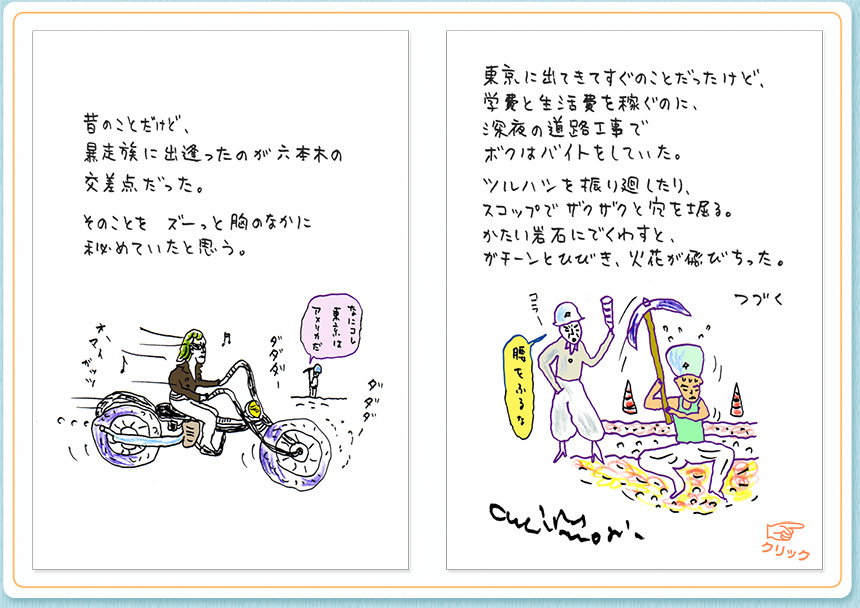 昔のことだけど、
暴走族に出逢ったのが六本木の
交差点だった。
そのことを ズーっと胸のなかに
秘めていたと思う。
オー
マイ
ガッツ
ダダダダー
なにコレ
東京は
アメリカだ
ダダダ
東京に出てきてすぐのことだったけど、
学費と生活費を稼ぐのに、
深夜の道路工事で
ボクはバイトをしていた。
ツルハシを振り廻したり、
スコップでザクザクと穴を堀る。
かたい岩石にでくわすと、
ガチーンとひびき、火花が飛びちった。
つづく
コラー
腰をふるな
クリック